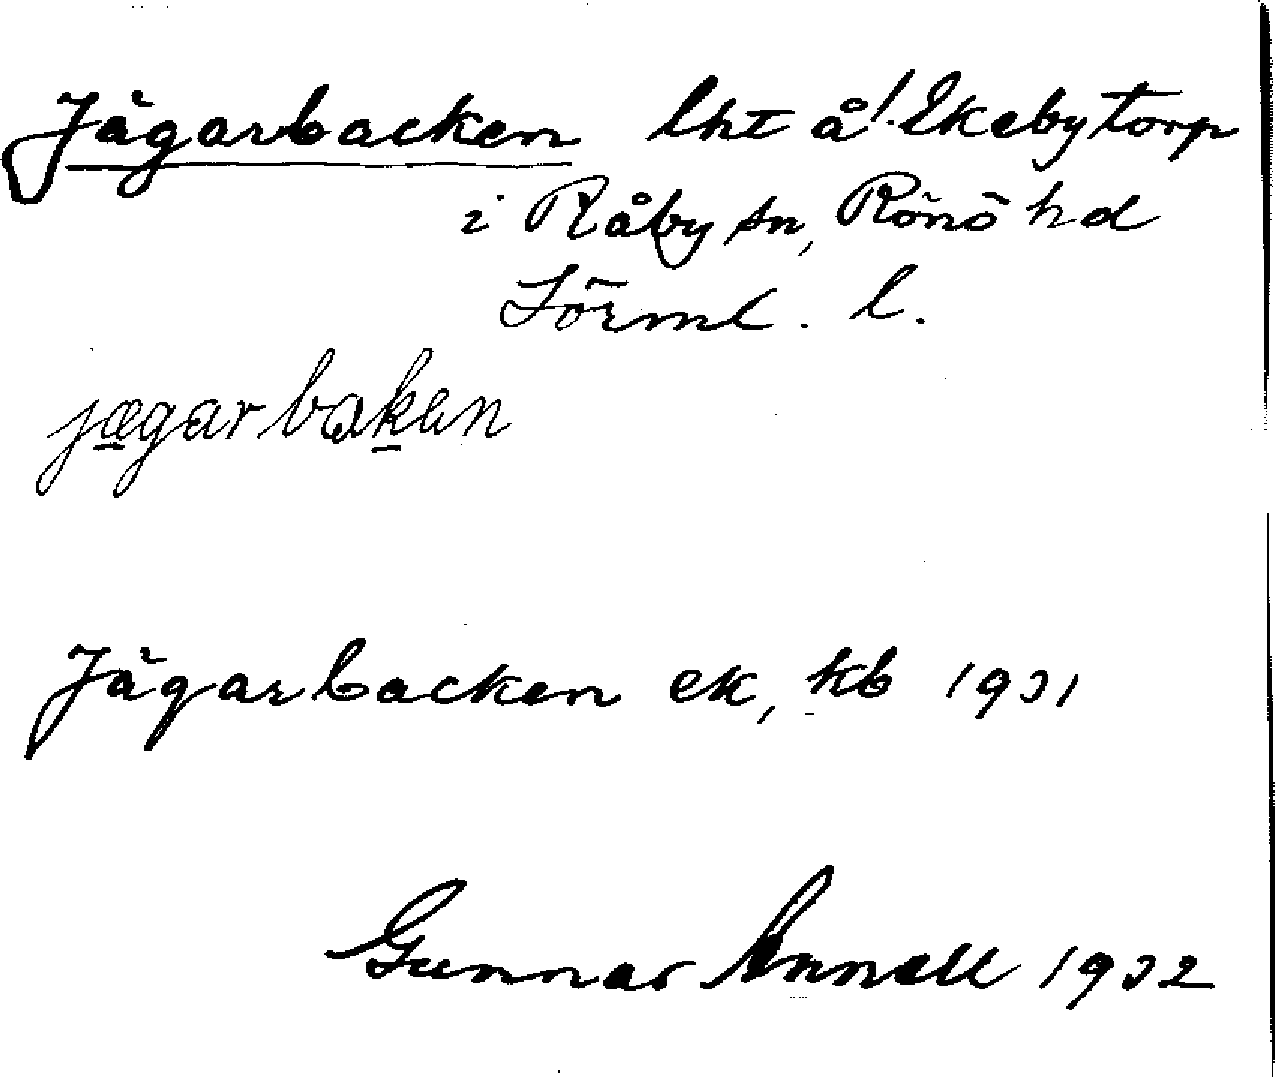 Jägarbacken lht å Ekebytorp
i Råby sn, Rönö hd
Sörml. l.
jægarbakɐn
Jägarbacken ek, kb 1931
Gunnar Annell 1932